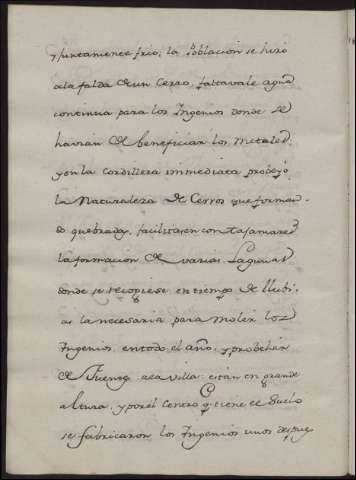 y suntamente frio; la Poblacion se hizo
a la falda de un Cerro, faltavale agua
continua para los Ingenios donde se
havian de beneficiar los Metales,
y en la Cordillera immediata probejó
la Naturaleza de Cerros que forman-
do quebradas, facilitasen con Tajamares
la formacion de varias Lagunas
donde se recogiese en tiempo de llubi-
as la necesaria para moler los
Ingenios en todo el año, y probeher
de Fuentes a la villa: están en grande
altura, y por el Centro q tiene el Suelo
se fabricaron los Ingenios unos despues